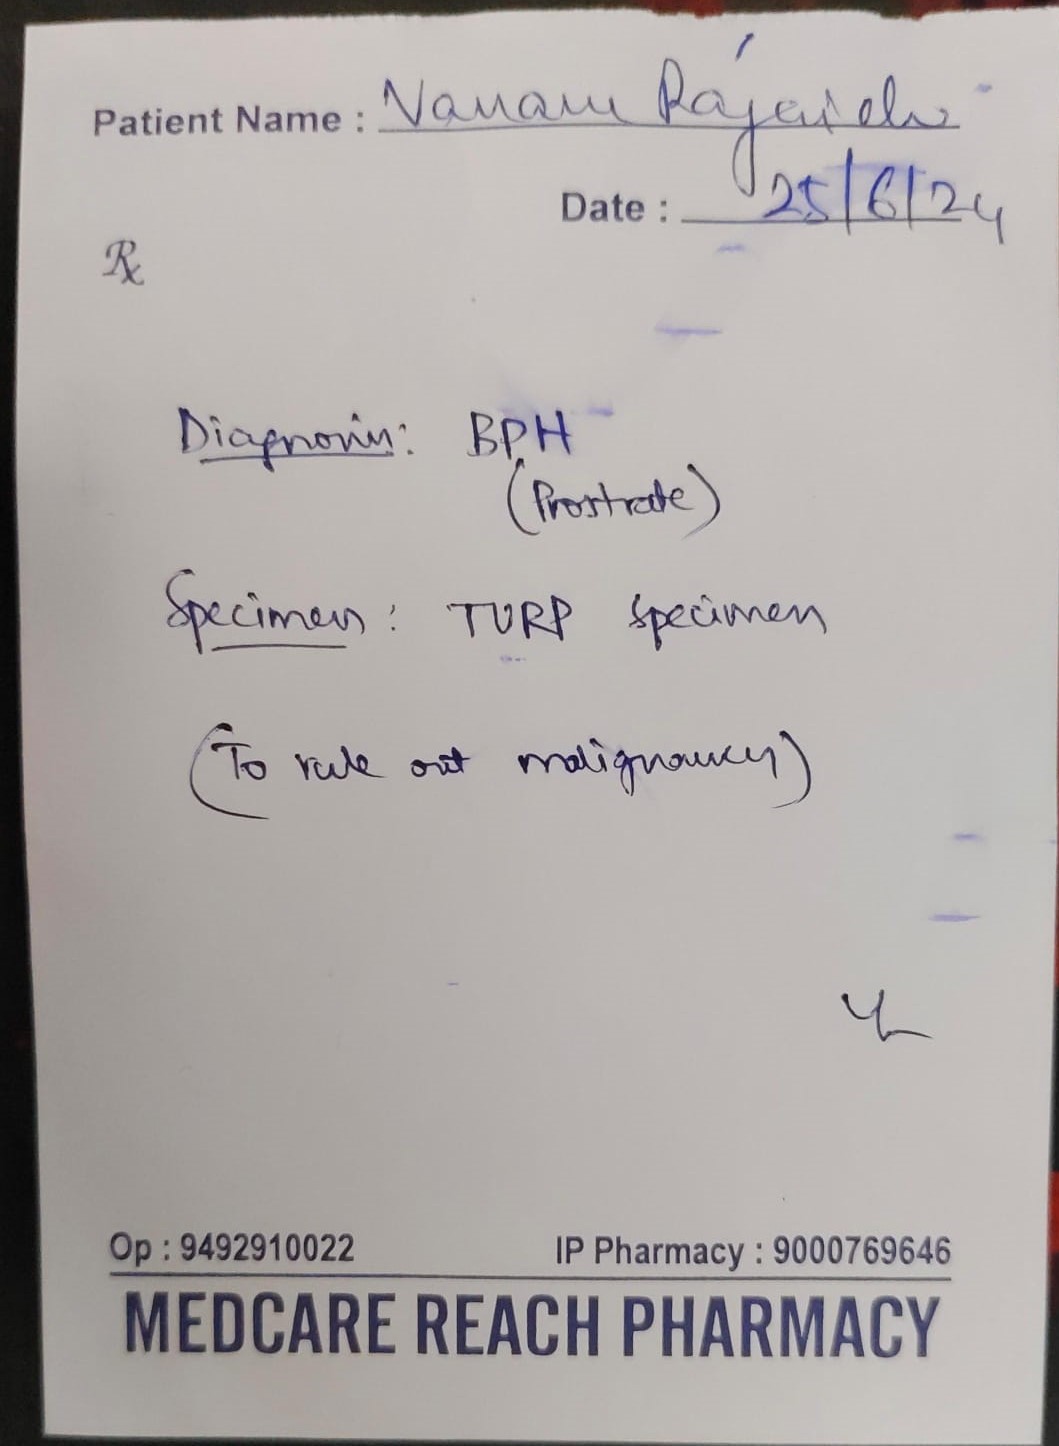 Patient Name : Vanam
Date : 25/6/24
Rx
Diagnosis: BPH
(Prostrate)
Specimen: TURP specimen
(To rule out malignancy)
Op : 9492910022 IP Pharmacy : 9000769646
MEDCARE REACH PHARMACY